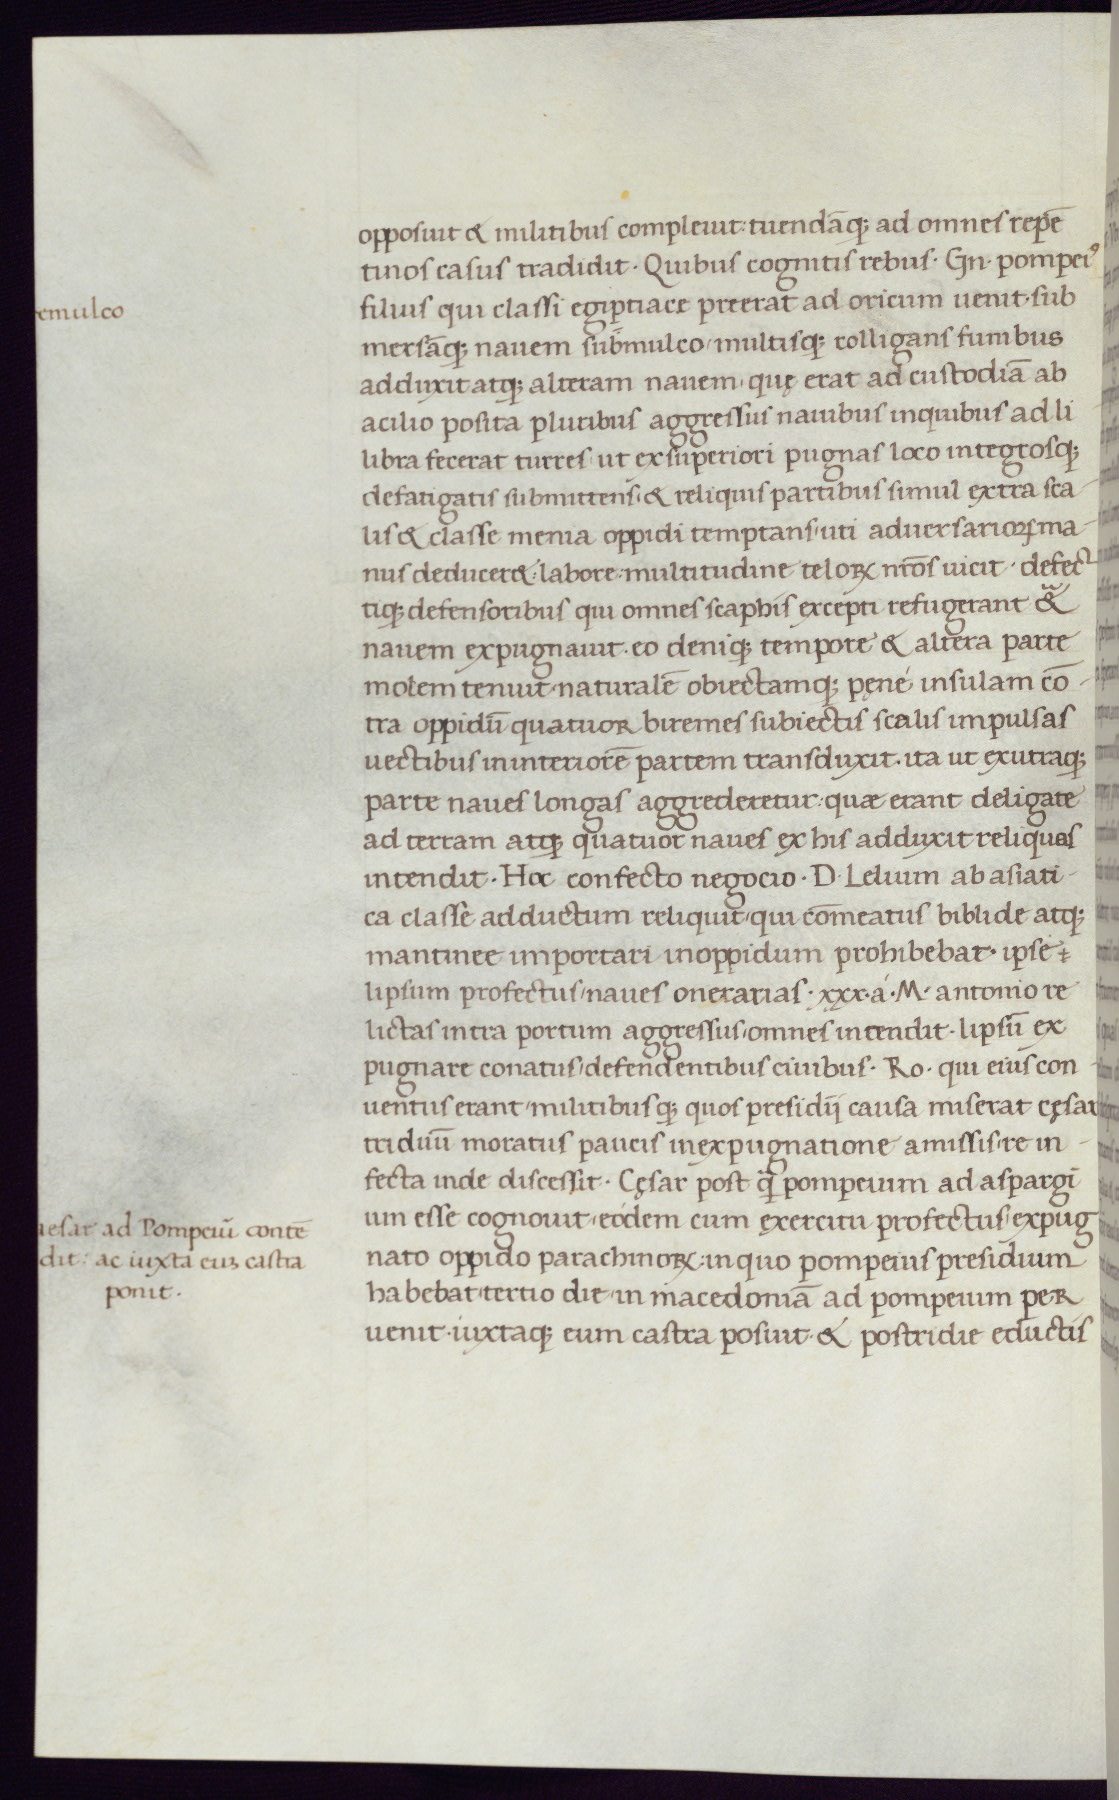 opposuit & militibus compleuit: tuendāq; ad omnes repē
tinos casus tradidit · Quibus cognitis rebus · Gn · pompeiꝰ
filius qui classi egiptiace preerat ad oricum uenit · sub
remulco
mersāq; nauem submulco / multisq; colligans funibus
adduxit atq; alteram nauem · quę erat ad custodiā ab
acilio posita pluribus aggressus nauibus inquibus ad li
libra fecerat turres / ut exsuperiori pugnas loco integrosq;
defatigatis submittens / & reliquis partibus simul extra sca-
lis & classe menia oppidi temptans / uti aduersarioꝝ ma-
nus deducer&: labore: multitudine teloꝝ nr̄os uicit · defec
tiq; defensoribus qui omnes scaphis excepti refugerant &
nauem expugnauit · eo deniq; tempore & altera parte
molem tenuit · naturalē obiectamq; pęne insulam cō-
tra oppidū quatuor biremes subiectis scalis impulsas
uectibus ininteriorē partem transduxit · ita ut exutraq;
parte naues longas aggrederetur: quæ erant deligate
ad terram atq; quatuor naues ex his adduxit reliquas
intendit · Hoc confecto negocio · D · Lelium ab asiati-
ca classe adductum reliquit / qui cōmeatus biblide atq;
mantinee importari inoppidum prohibebat · ipse
lipsum profectus / naues onerarias · xxx · á · M · antonio re
lictas intra portum aggressus / omnes intendit · lipsū ex
pugnare conatus / defendentibus ciuibus · Ro · qui eius con-
uentus erant / militibusq; quos presidij causa miserat cęsar
triduū moratus paucis inexpugnatione amissis / re in-
fecta inde discessit · Cęsar post q̄ pompeium ad aspargi
um esse cognouit / eodem cum exercitu profectus / expug
Caesar ad Pompeiū contē
dit: ac iuxta eius castra
ponit ·
nato oppido parachinoꝝ: in quo pompeius presidium
habebat / tertio die / in macedoniā ad pompeium per
uenit · iuxtaq; eum castra posuit · & postridie eductis